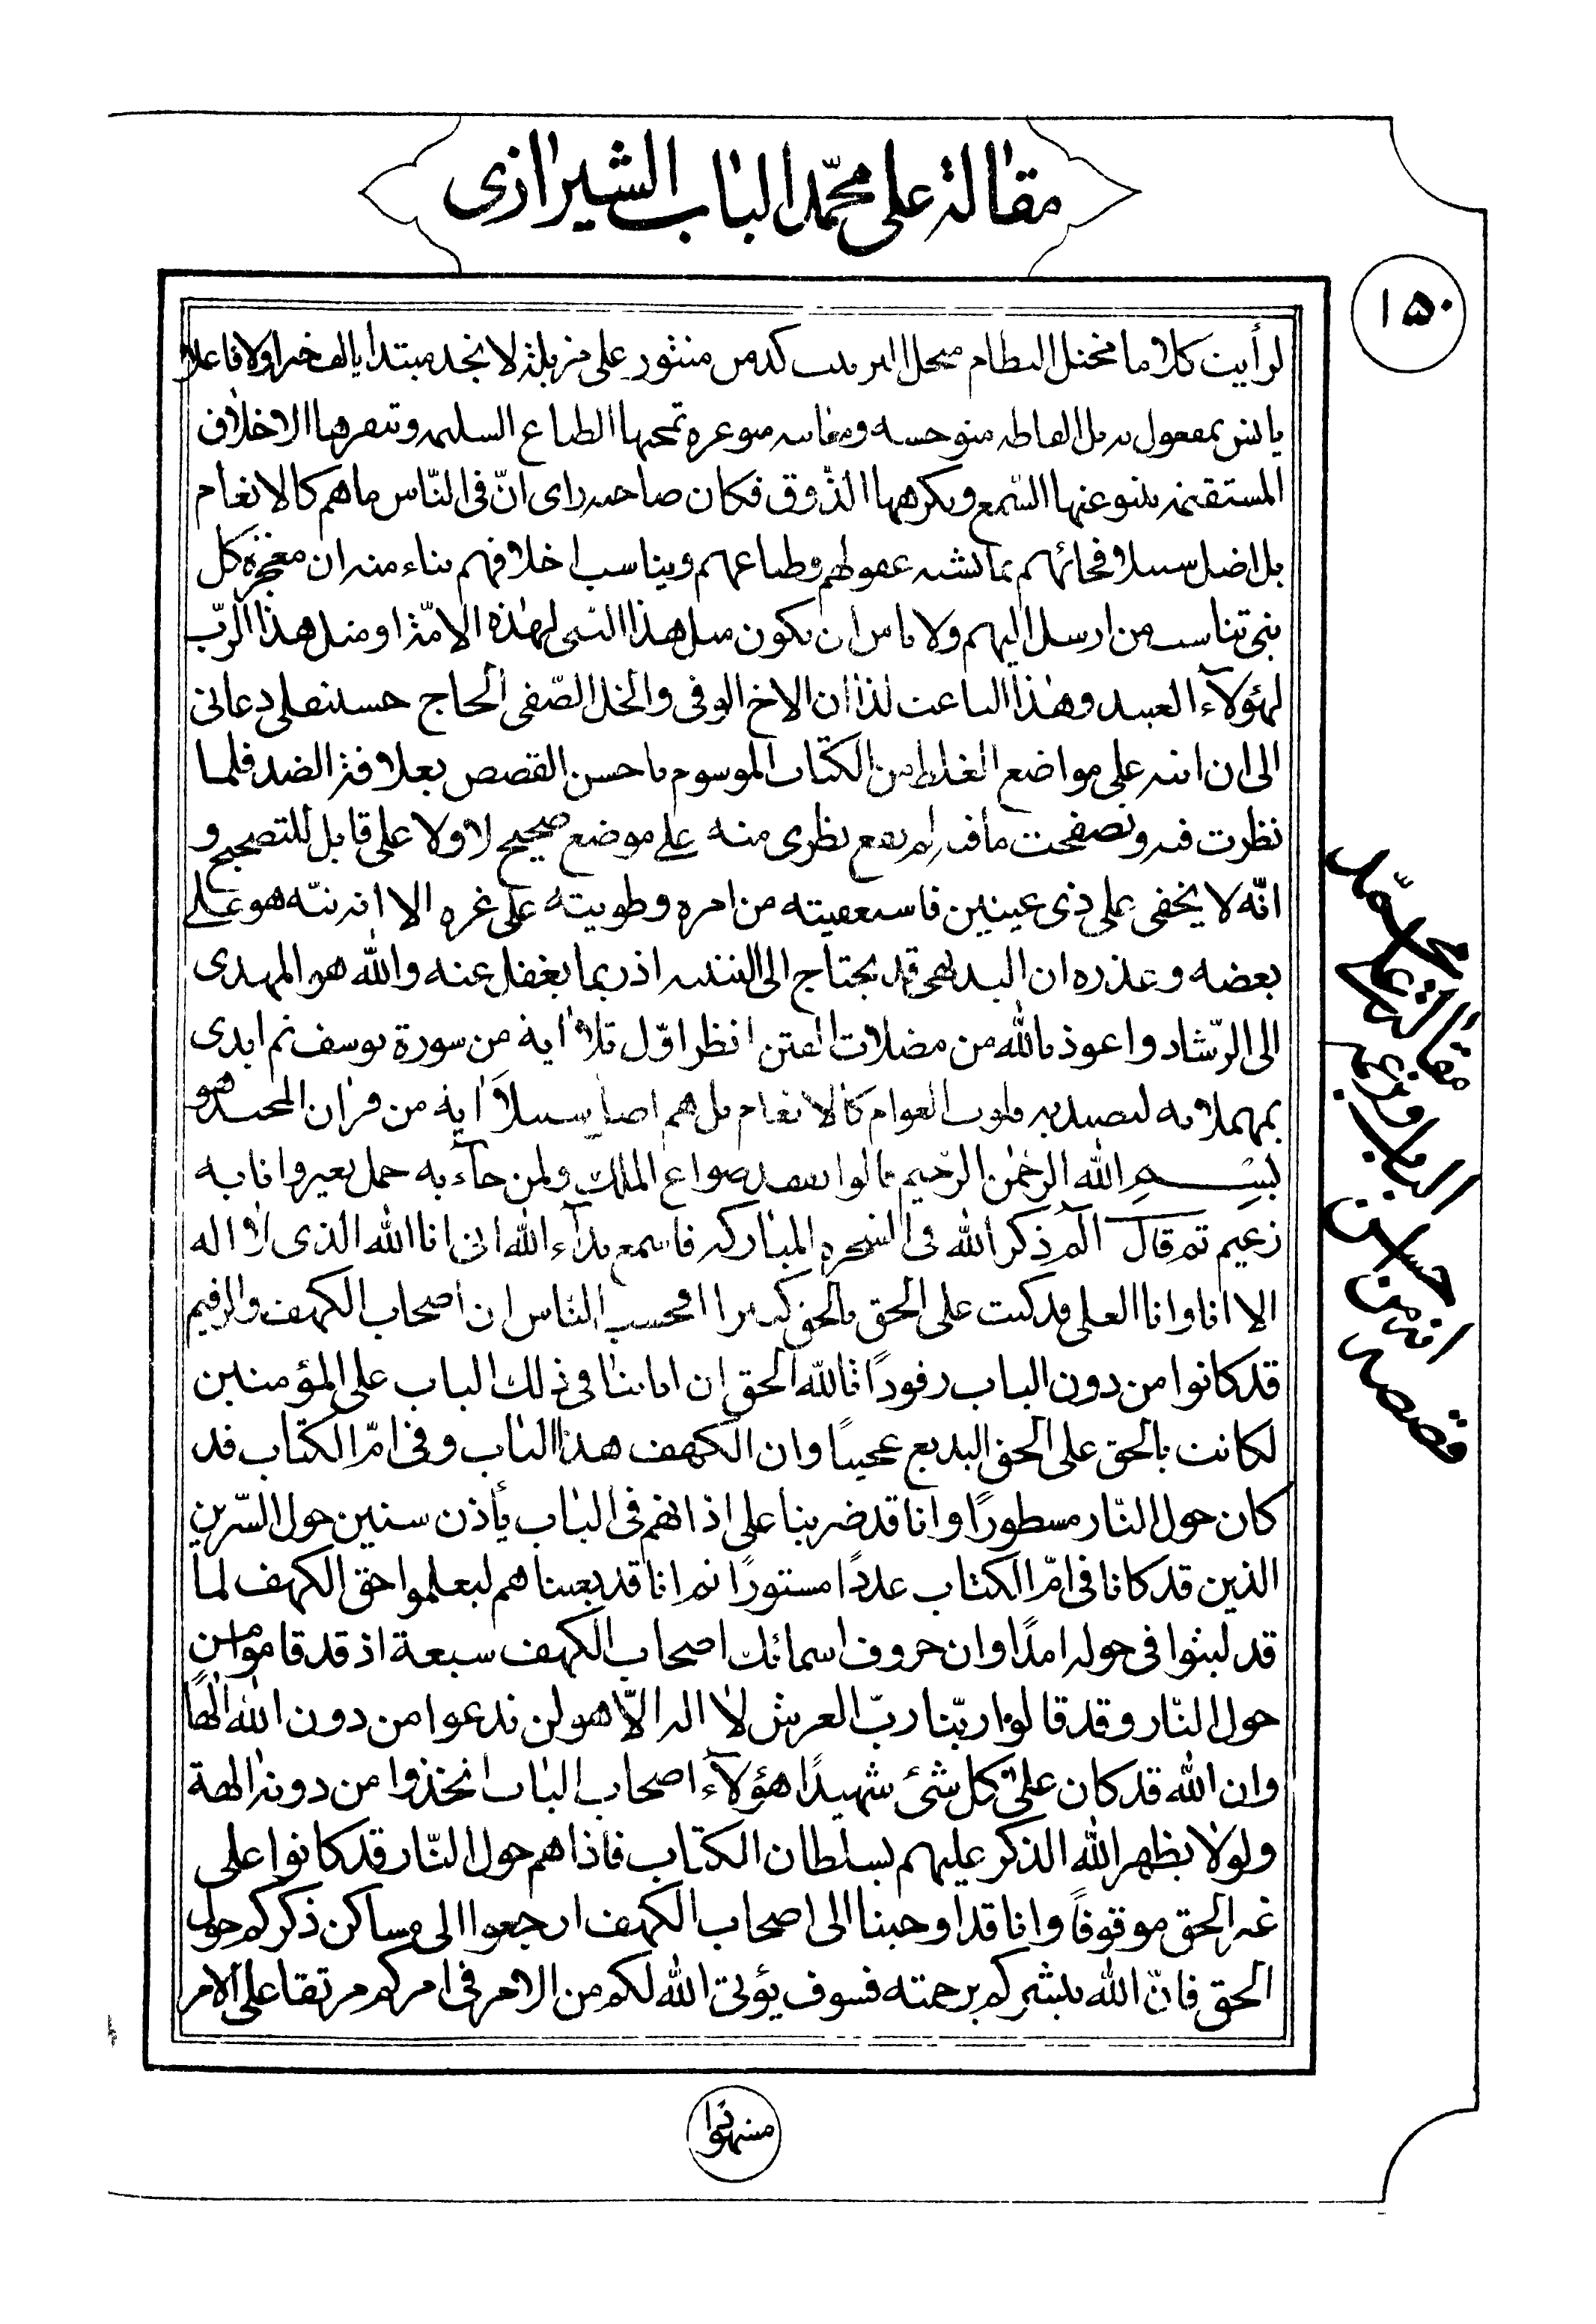 مقالة علی محمّد الباب الشیرازی
۱۵۰
لرأیت کلاما مختل النظام منحل الترتیب کدمن منثور علی مزبلة لا تجد مبتدأ یالف خبرا ولا فاعلا
یانس بمفعول به بل الفاظه متوحسه ومعانیه متوعره تمجها الطباع السلیمه وتنفرها الاخلاق
المستقیمه ینبو عنها السّمع ویکرهها الذّوق فکان صاحبه رای انّ فی النّاس ما هم کالانعام
بل اضل سبیلا فجائهم بما یشبه عقولهم وطباعهم ویناسب اخلاقهم بناء منه ان معجزة کل
نبی تناسب من ارسل الیهم ولا باس ان یکون مثل هذا النبی لهذه الامّة او مثل هذا الرّب
لهؤلآء العبید وهذا الباعث لذا ان الاخ الوفی والخل الصّفی الحاج حسینعلی دعانی
الی ان انبه علی مواضع الغلط من الکتاب الموسوم باحسن القصص بعلاقة الضد فلما
نظرت فیه وتصفحت ما فیه لم یقع نظری منه علی موضع صحیح لا ولا علی قابل للتصحیح و
انّه لا یخفی علی ذی عینین فاستعفیته من امره وطویته علی غره الا انه نبّه هو علی
بعضه وعذره ان البدیهی قد یحتاج الی التنبیه اذ ربما یغفل عنه والله هو المهدی
الی الرّشاد واعوذ بالله من مضلات الفتن انظر اوّل تلا آیة من سورة یوسف ثم ابدی
بمهملاته لیصید به قلوب العوام کالانعام بل هم اضل سبیلا آیة من قران المجید هو
بسم الله الرحمن الرحیم قالوا نفقد صواع الملک ولمن جآء به حمل بعیر وانا به
زعیم ثم قال آلم ذکر الله فی الشجره المبارکه فاسمع ندآء الله انی انا الله الذی لا اله
الا انا وانا العلی قد کنت علی الحق بالحق کبیرا ام حسب النّاس ان اصحاب الکهف والرقیم
قد کانوا من دون الباب رقودًا تالله الحق ان ایاتنا فی ذلک الباب علی المؤمنین
لکانت بالحق علی الحق البدیع عجیبًا وان الکهف هذا الباب وفی امّ الکتاب قد
کان حول النّار مسطورًا وانا قد ضربنا علی اذانهم فی الباب بأذن سنین حول السّرین
الذین قد کانا فی امّ الکتاب عددًا مستورًا ثم انا قد بعثناهم لیعلموا حق الکهف لما
قد لبثوا فی حوله امدًا وان حروف اسمائک اصحاب الکهف سبعة اذ قد قاموا من
حول النّار وقد قالوا ربّنا ربّ العرش لا اله الّا هو لن ندعوا من دون الله الٰهًا
وان الله قد کان علی کل شئ شهیدًا هؤلآء اصحاب الباب اتخذوا من دونه الهة
ولولا یظهر الله الذکر علیهم بسلطان الکتاب فاذا هم حول النّار قد کانوا علی
غیر الحق موقوفًا وانا قد اوحینا الی اصحاب الکهف ارجعوا الی مساکن ذکرکم حول
الحق فانّ الله یبشرکم برحمته فسوف یؤتی الله لکم من الامر فی امرکم مرتفقا علی الامر
مشهودًا
مقالة علی محمّد
الباب وزعمه
انه من احسن
قصصه